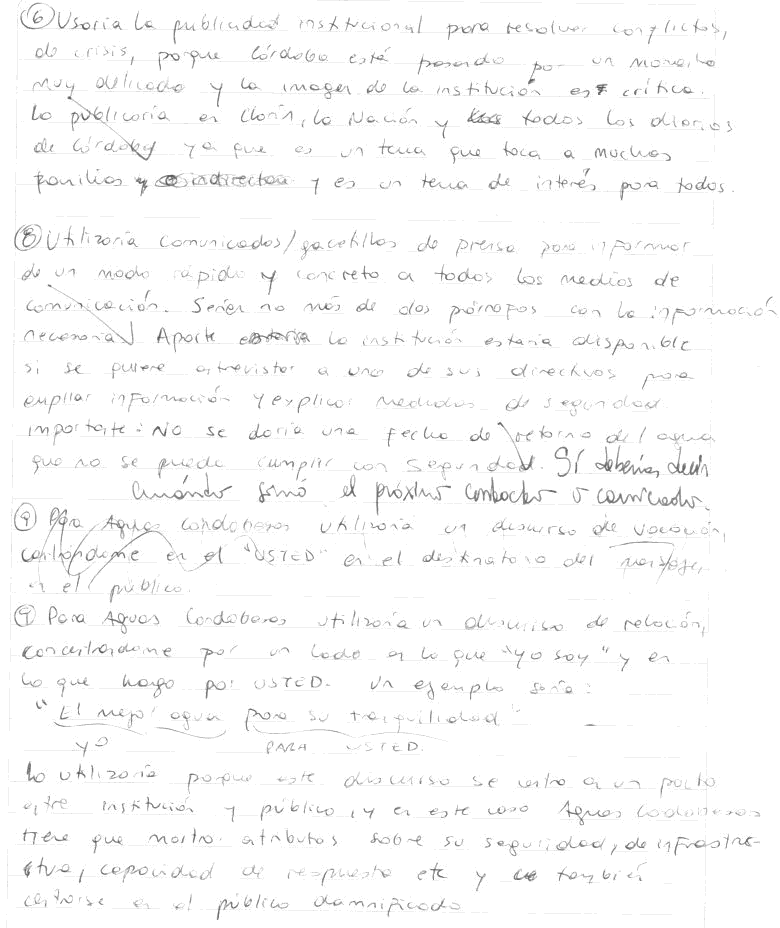 ⑥ Usaría la publicidad institucional para resolver conflictos,
de crisis, porque Córdoba está pasando por un momento
muy delicado y la imagen de la institución es crítica.
Lo publicaría en Clarín, La Nación y todos los diarios
de Córdoba ya que es un tema que toca a muchas
familias y es un tema de interés para todos.
⑧ Utilizaría comunicados/gacetillas de prensa para informar
de un modo rápido y concreto a todos los medios de
comunicación. Serían no más de dos párrafos con la información
necesaria. Aparte la institución estaría disponible
si se quiere entrevistar a uno de sus directivos para
ampliar información y explicar medidas de seguridad.
importante: No se daría una fecha de retorno del agua
que no se puede cumplir con seguridad. Sí deberías decir
cuándo será el próximo contacto o comunicado.
⑨ Para Aguas Cordobesas utilizaría un discurso de vocación,
centrándome en el "USTED" en el destinatario del mensaje,
en el público.
⑨ Para Aguas Cordobesas utilizaría un discurso de relación,
concentrándome por un lado en lo que "yo soy" y en
lo que hago por USTED. Un ejemplo sería:
"El mejor agua para su tranquilidad"
yo PARA USTED.
Lo utilizaría porque este discurso se centra en un pacto
entre institución y público, y en este caso Aguas Cordobesas
tiene que mostrar atributos sobre su seguridad, de infraestru-
ctura, capacidad de respuesta etc y también
centrarse en el público damnificado